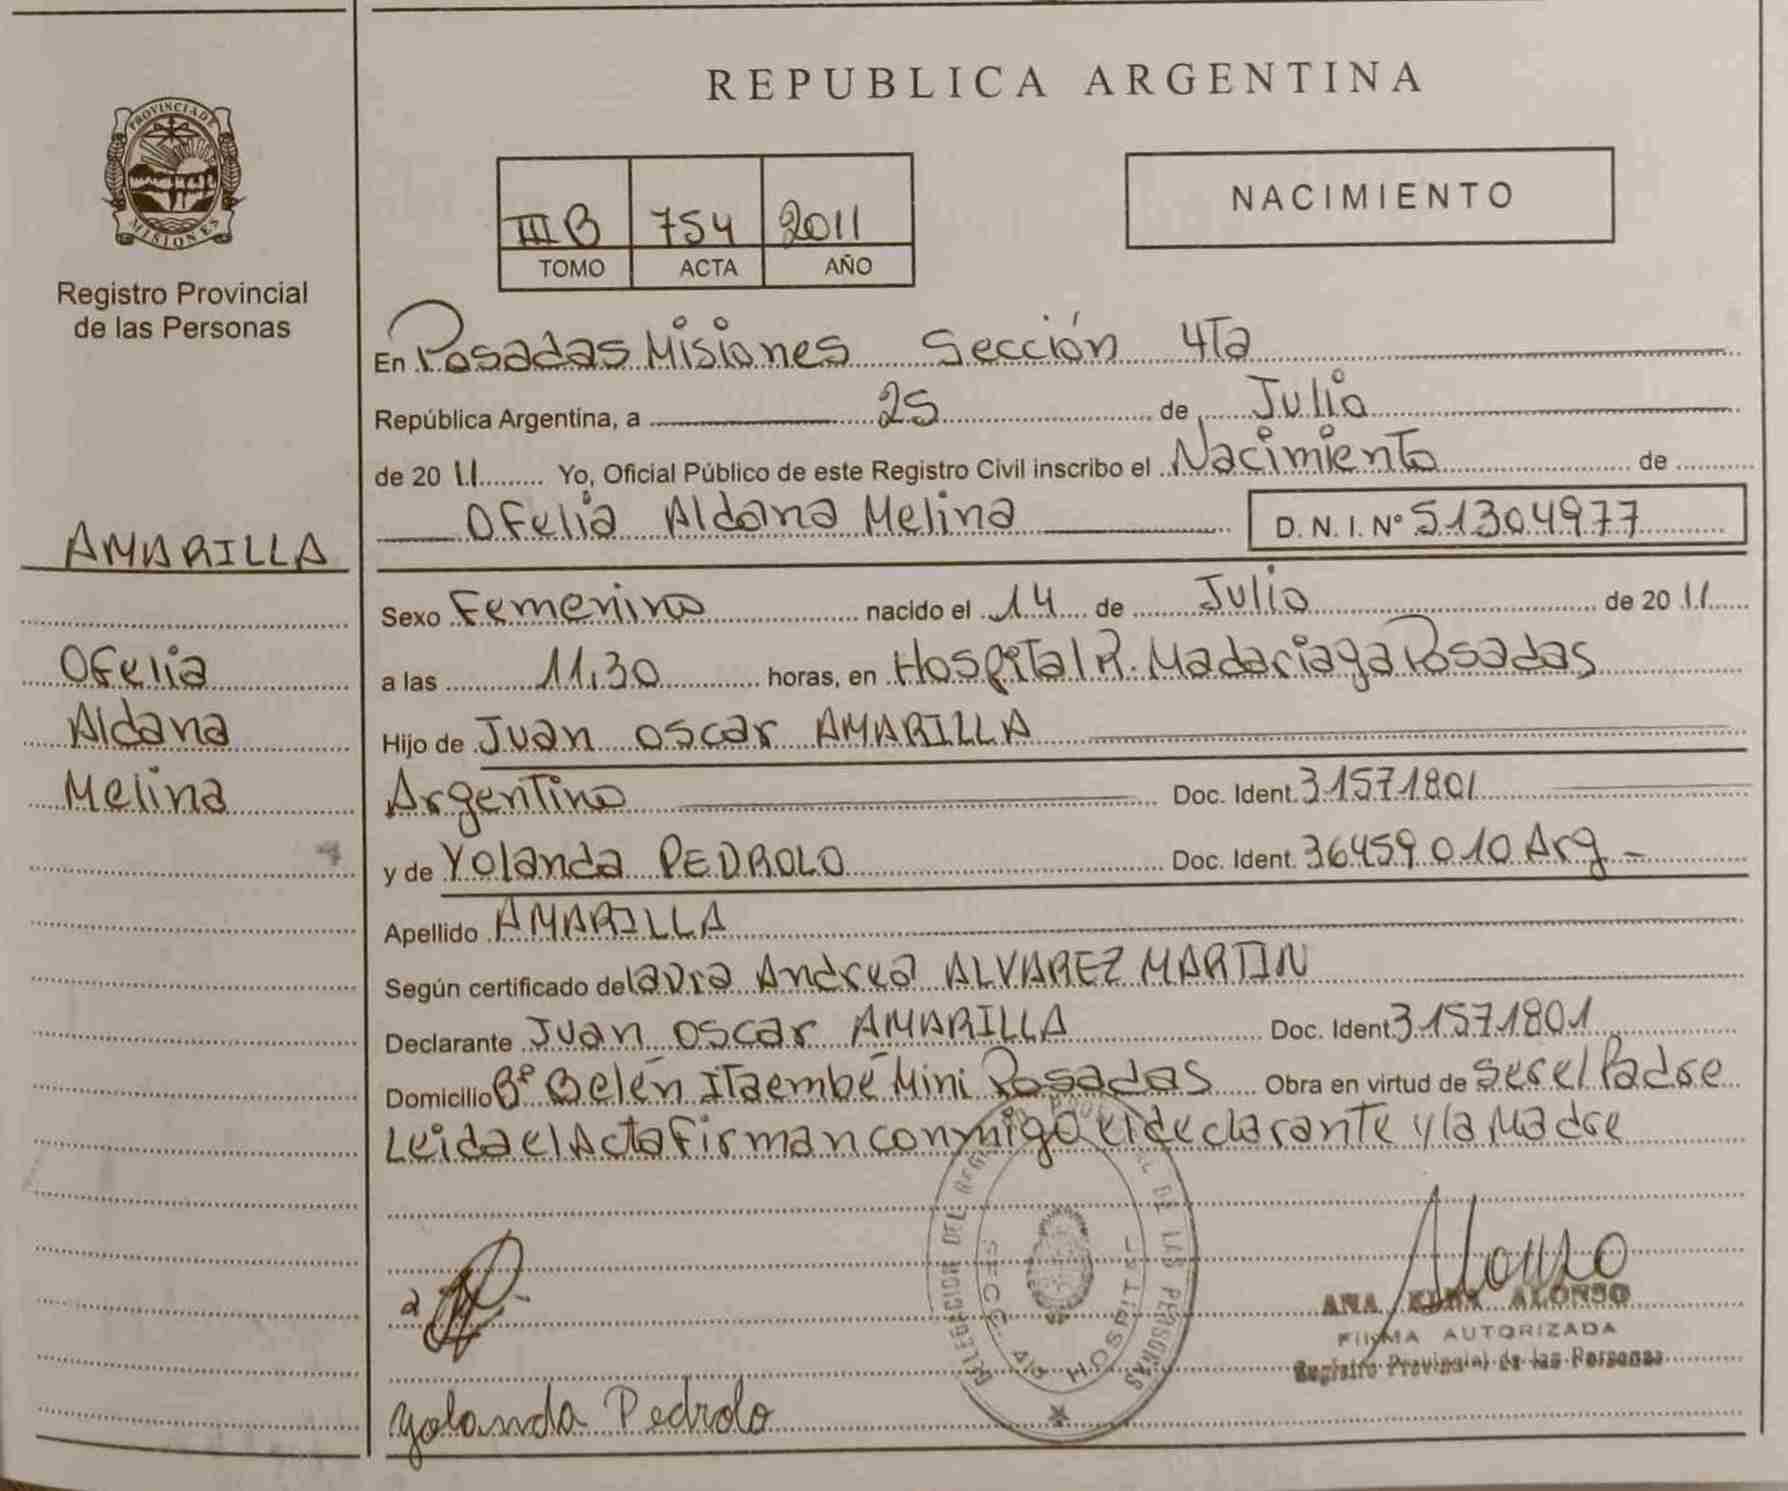 PROVINCIA DE
MISIONES
Registro Provincial
de las Personas
AMARILLA
Ofelia
Aldana
Melina
REPUBLICA ARGENTINA
III B 754 2011
TOMO ACTA AÑO
NACIMIENTO
En Posadas Misiones Sección 4Ta
República Argentina, a 25 de Julio
de 20 11 Yo, Oficial Público de este Registro Civil inscribo el Nacimiento de
Ofelia Aldana Melina D. N. I. Nº 51304977
Sexo Femenino nacido el 14 de Julio de 20 11
a las 11,30 horas, en Hospital R. Madariaga Posadas
Hijo de Juan Oscar AMARILLA
Argentino Doc. Ident. 31571801
y de Yolanda PEDROLO Doc. Ident. 36459010 Arg -
Apellido AMARILLA
Según certificado de Laura Andrea ALVAREZ MARTIN
Declarante Juan Oscar AMARILLA Doc. Ident 31571801
Domicilio Bº Belén Itaembé Mini Posadas Obra en virtud de ser el Padre
Leida el Acta Firman conmigo el declarante y la Madre
DE LAS PERSONAS
SECC. 4ª HOSPITAL
Alonso
ANA ALONSO
FIRMA AUTORIZADA
Registro Provincial de las Personas
Yolanda Pedrolo